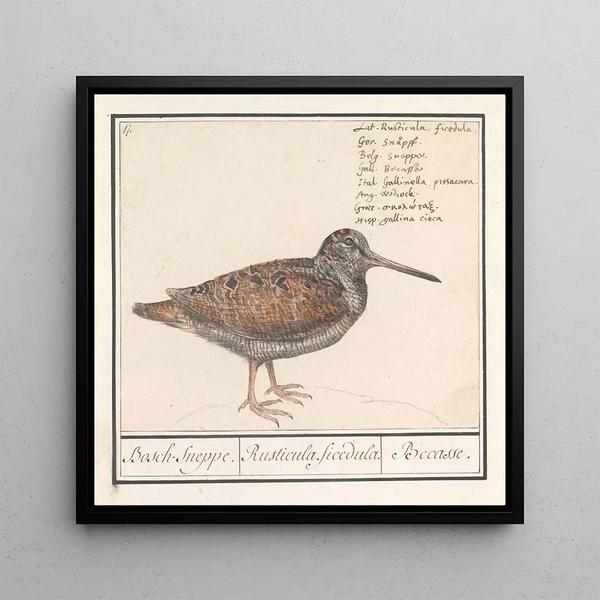 17.
Lat. Rusticula ficedula.
Ger. Snåpff.
Belg. Sneppe.
Gall. Becasse
Ital. Gallinella, pissacara.
Ang. Wodcock.
Græc. σκολώταξ.
Hisp. gallina cieca
Bosch-Sneppe. Rusticula. ficedula. Becasse.